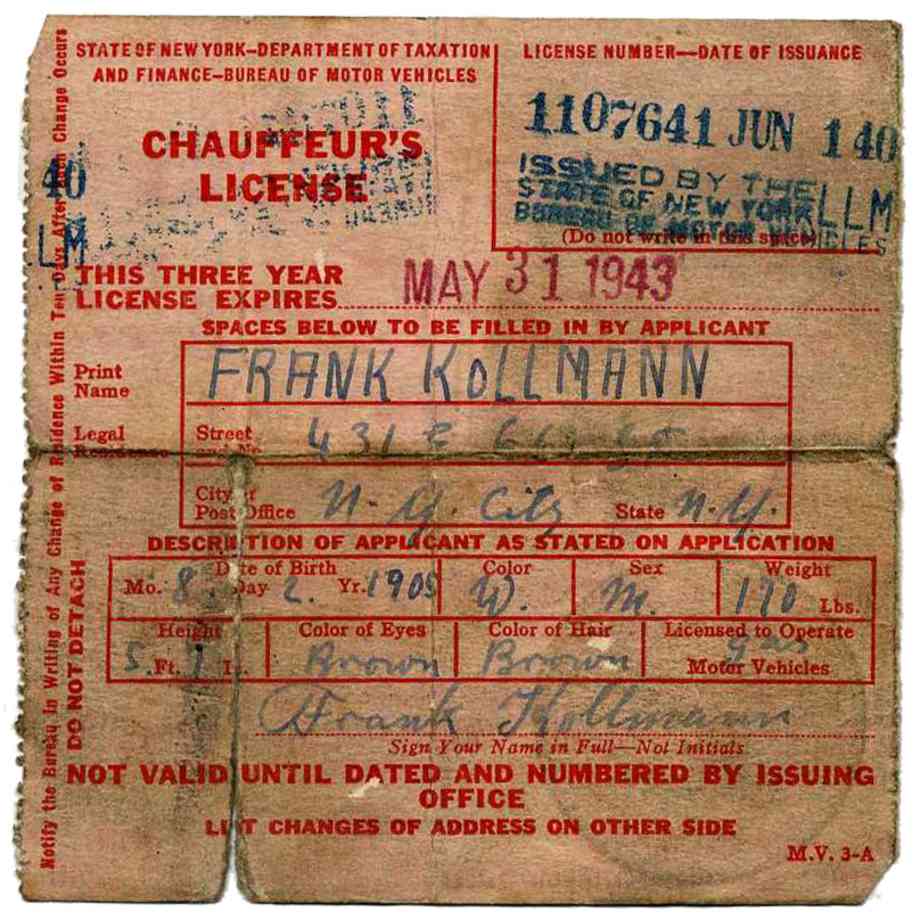 STATE OF NEW YORK—DEPARTMENT OF TAXATION
AND FINANCE—BUREAU OF MOTOR VEHICLES
CHAUFFEUR'S
LICENSE
LICENSE NUMBER—DATE OF ISSUANCE
1107641 JUN 1 40
ISSUED BY THE
STATE OF NEW YORK
BUREAU OF MOTOR VEHICLES
LLM
(Do not write in this space)
40
LM
THIS THREE YEAR
LICENSE EXPIRES MAY 31 1943
SPACES BELOW TO BE FILLED IN BY APPLICANT
Print
Name
FRANK KOLLMANN
Legal
Residence
Street
and No. 431 E St
City or
Post Office N.Y. City State N.Y.
DESCRIPTION OF APPLICANT AS STATED ON APPLICATION
Date of Birth Color Sex Weight
Mo. 8. Day 2. Yr. 1905 W. M. 170 Lbs.
Height Color of Eyes Color of Hair Licensed to Operate
5 Ft. 7 In. Brown Brown gas
Motor Vehicles
Frank Kollmann
Sign Your Name in Full—Not Initials
NOT VALID UNTIL DATED AND NUMBERED BY ISSUING
OFFICE
LIST CHANGES OF ADDRESS ON OTHER SIDE
M.V. 3-A
Notify the Bureau in Writing of Any Change of Residence Within Ten Days After Such Change Occurs
DO NOT DETACH